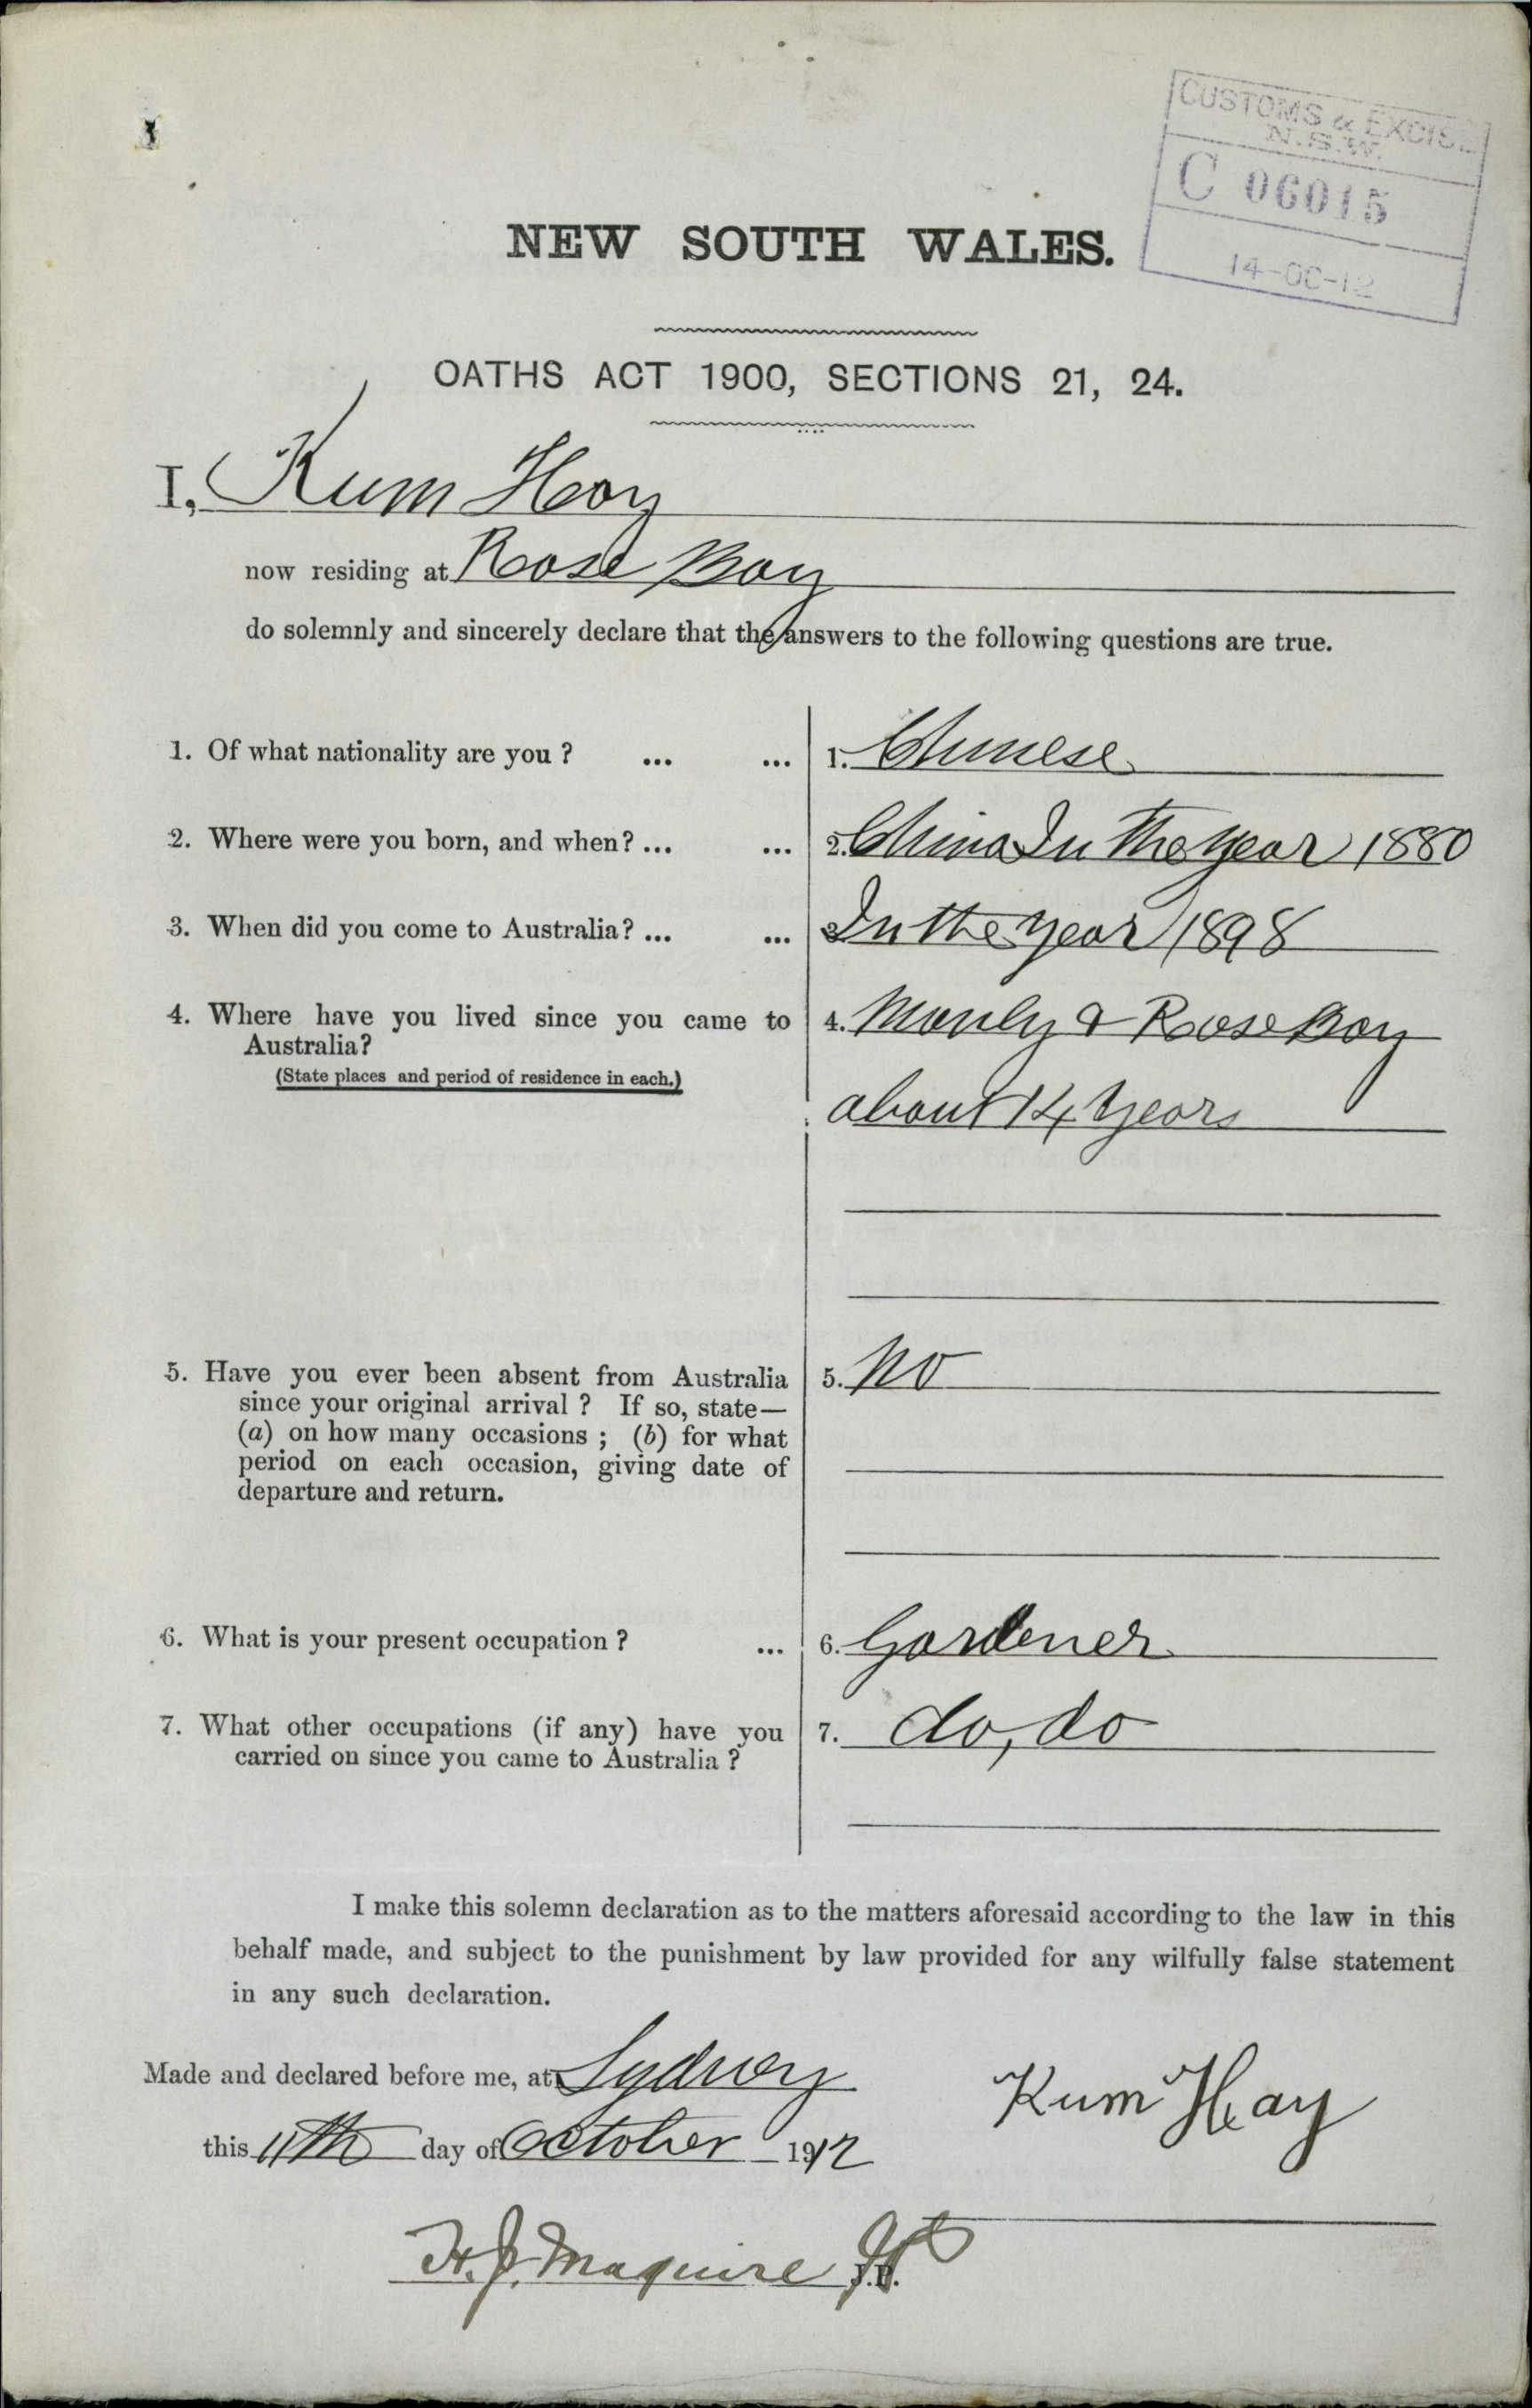 CUSTOMS & EXCISE
N.S.W.
C 06015
14-OC-12
NEW SOUTH WALES.
OATHS ACT 1900, SECTIONS 21, 24.
I, Kum Hoy
now residing at Rose Bay
do solemnly and sincerely declare that the answers to the following questions are true.
1. Of what nationality are you ? ... ... 1. Chinese
2. Where were you born, and when? ... ... 2. China In the year 1880
3. When did you come to Australia? ... ... In the year 1898
4. Where have you lived since you came to 4. Manly & Rose Bay
Australia?
(State places and period of residence in each.)
about 14 years
5. Have you ever been absent from Australia 5. No
since your original arrival ? If so, state—
(a) on how many occasions ; (b) for what
period on each occasion, giving date of
departure and return.
6. What is your present occupation ? ... 6. Gardener
7. What other occupations (if any) have you 7. do, do
carried on since you came to Australia ?
I make this solemn declaration as to the matters aforesaid according to the law in this
behalf made, and subject to the punishment by law provided for any wilfully false statement
in any such declaration.
Made and declared before me, at Sydney
Kum Hay
this 11th day of October 1912
H. J. Maguire JP
J.P.